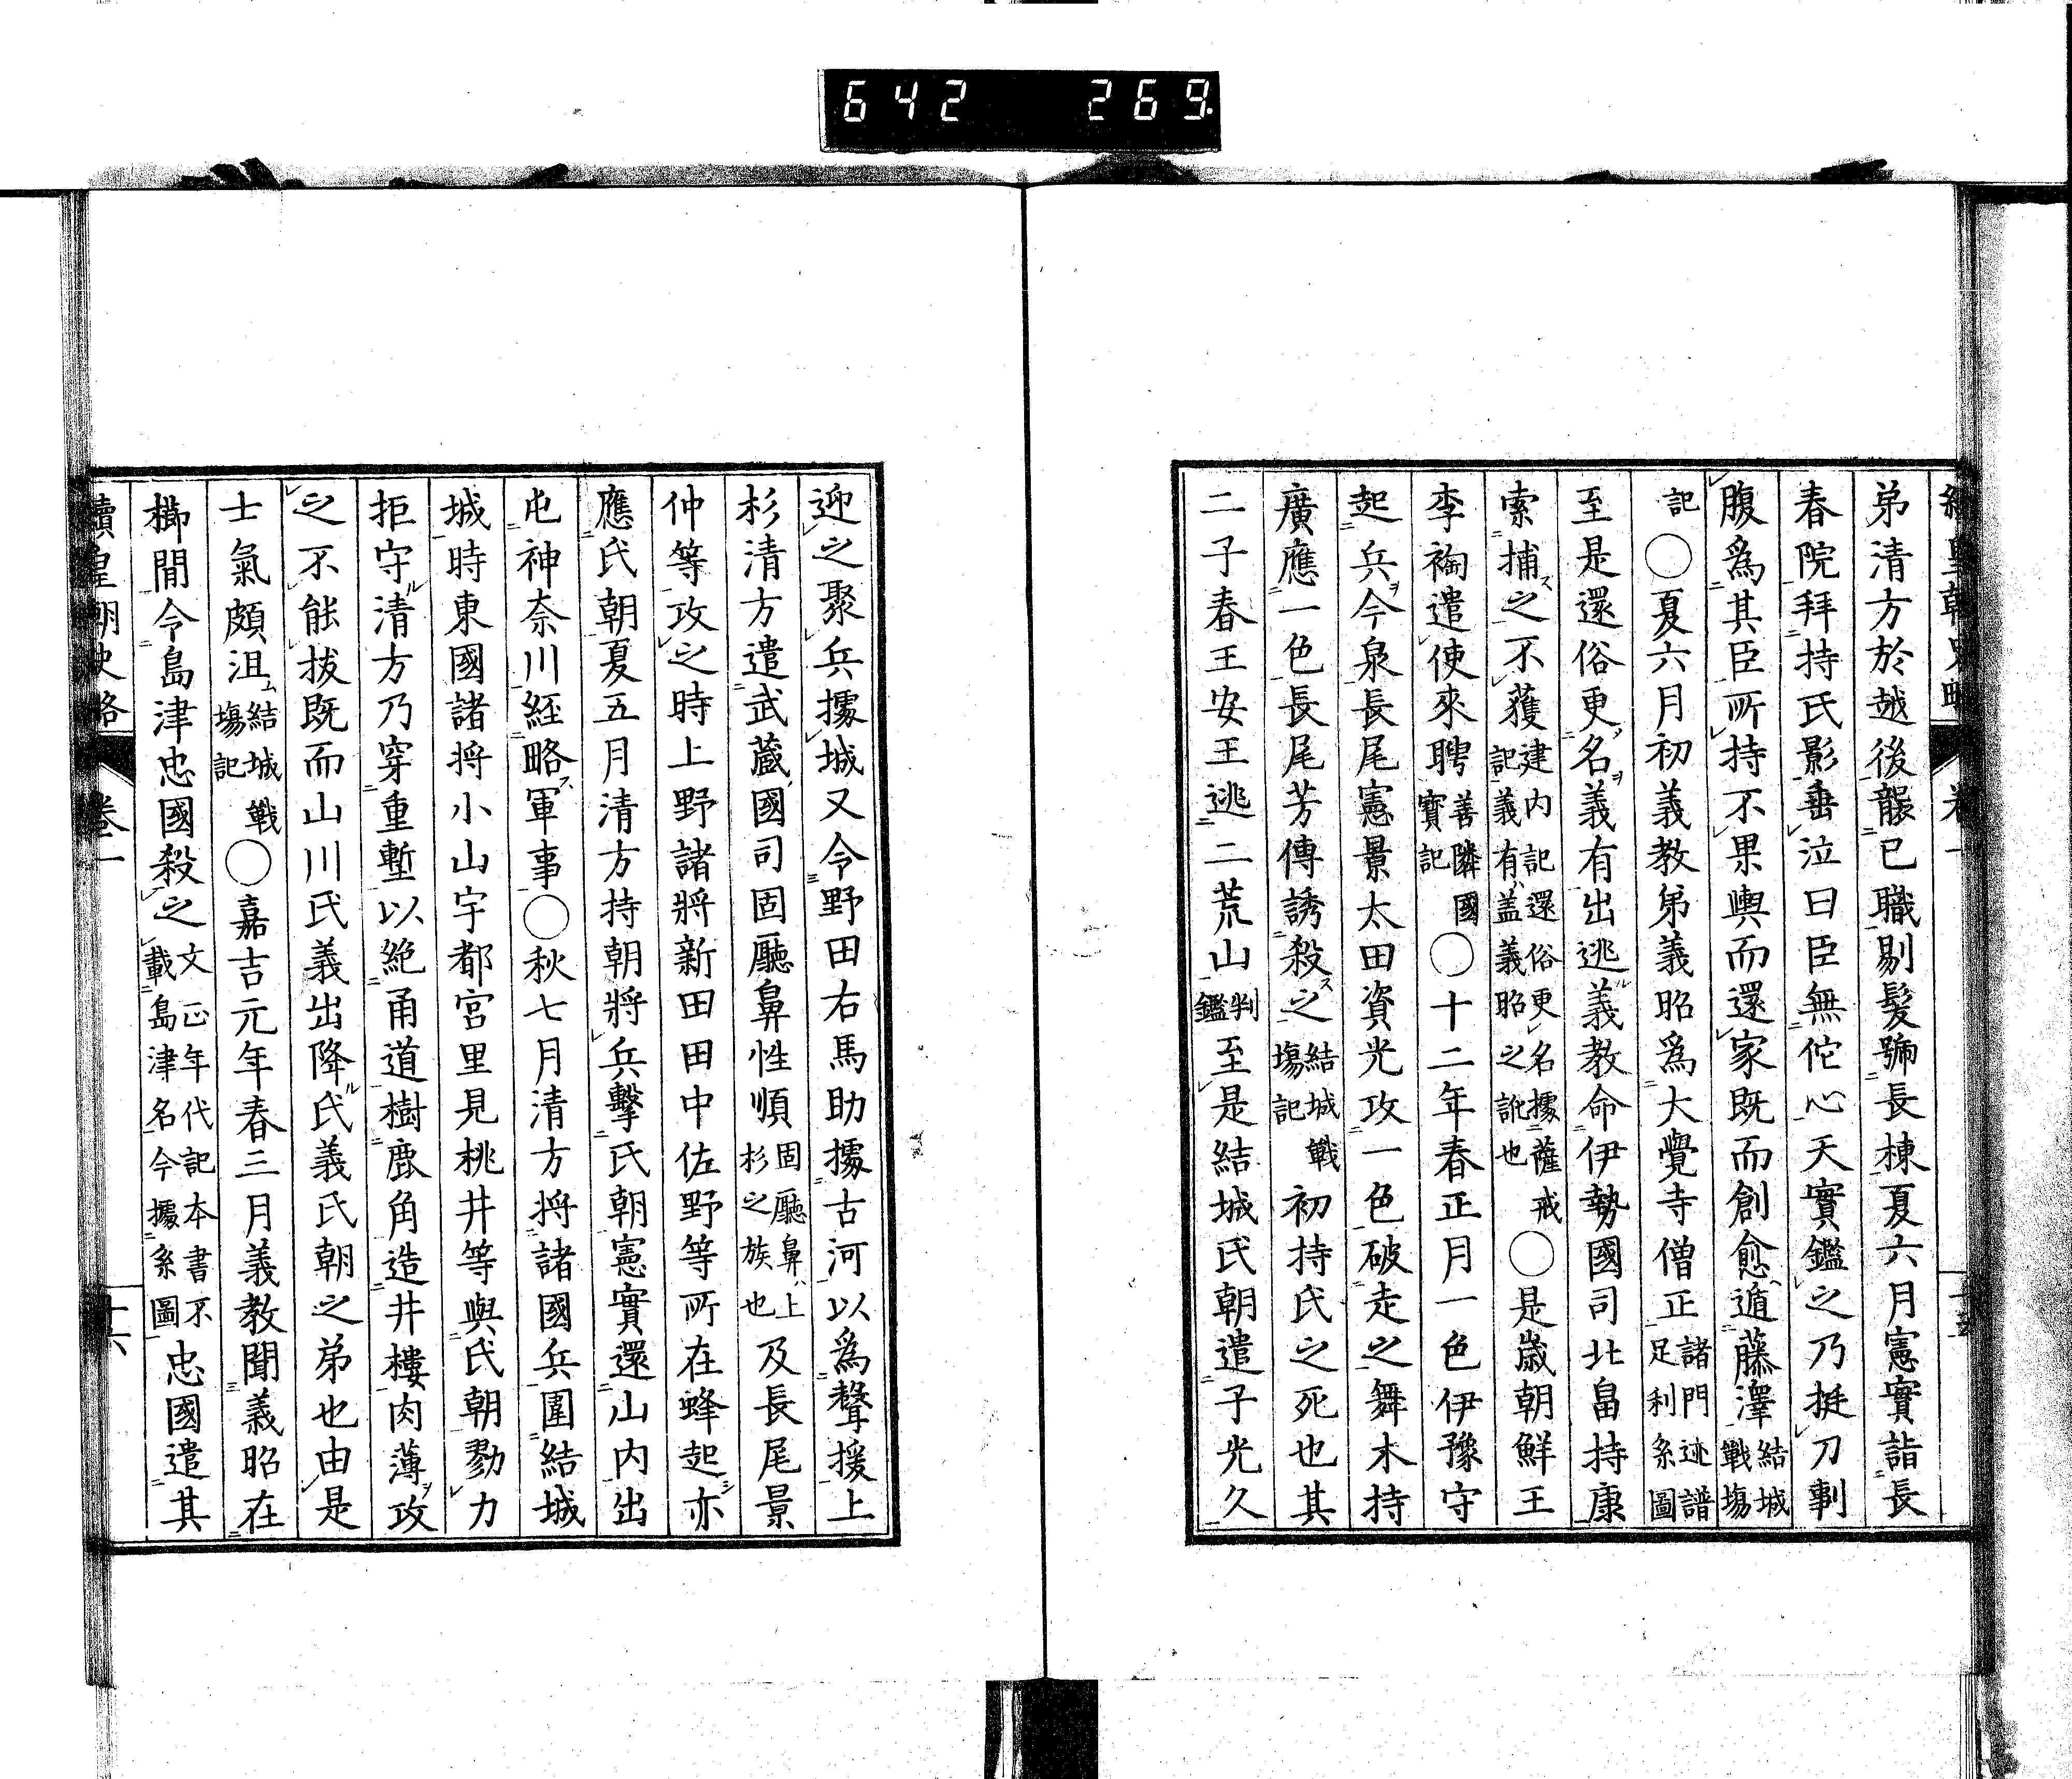 642 269
續皇朝史略 卷一
弟清方於越後襲已職剔髮號長棟夏六月憲實詣長
春院拜持氏影垂泣曰臣無佗心天實鑑之乃挺刀剚
腹爲其臣所持不果輿而還家既而創愈遁藤澤結城戰場
記○夏六月初義教弟義昭爲大覺寺僧正諸門迹譜足利系圖
至是還俗更名ヲ義有出逃ル義教命伊勢國司北畠持康
索捕ス之不獲建内記還俗更名據薩戒記義有ハ盖義昭之訛也○是歲朝鮮王
李裪遣使來聘善隣國寶記○十二年春正月一色伊豫守
起兵ヲ今泉長尾憲景太田資光攻一色破走之舞木持
廣應一色長尾芳傳誘殺ス之結城戰場記初持氏之死也其
二子春王安王逃二荒山判鑑至是結城氏朝遣子光久
迎之聚兵據城又令野田右馬助據古河以爲聲援上
杉清方遣武藏國司固廳鼻性順固廳鼻ハ上杉之族也及長尾景
仲等攻之時上野諸將新田田中佐野等所在蜂起亦
應氏朝夏五月清方持朝將兵擊氏朝憲實還山内出
屯神奈川經略ス軍事○秋七月清方將諸國兵圍結城
城時東國諸将小山宇都宮里見桃井等與氏朝勠力
拒守ル清方乃穿重塹以絶甬道樹鹿角造井樓肉薄ヲ攻
之不能拔既而山川氏義出降ル氏義氏朝之弟也由是
士氣頗沮ム結城戰場記○嘉吉元年春三月義教聞義昭在
櫛間令島津忠國殺之文正年代記本書不載島津名今據系圖忠國遣其
續皇朝史略 卷一 十六